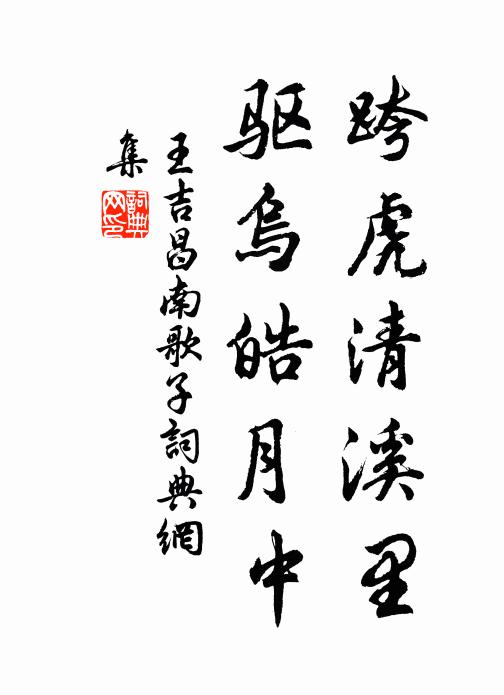 跨虎清溪里
驱乌皓月中
王吉昌南歌子詞典網
集
詞典
网印